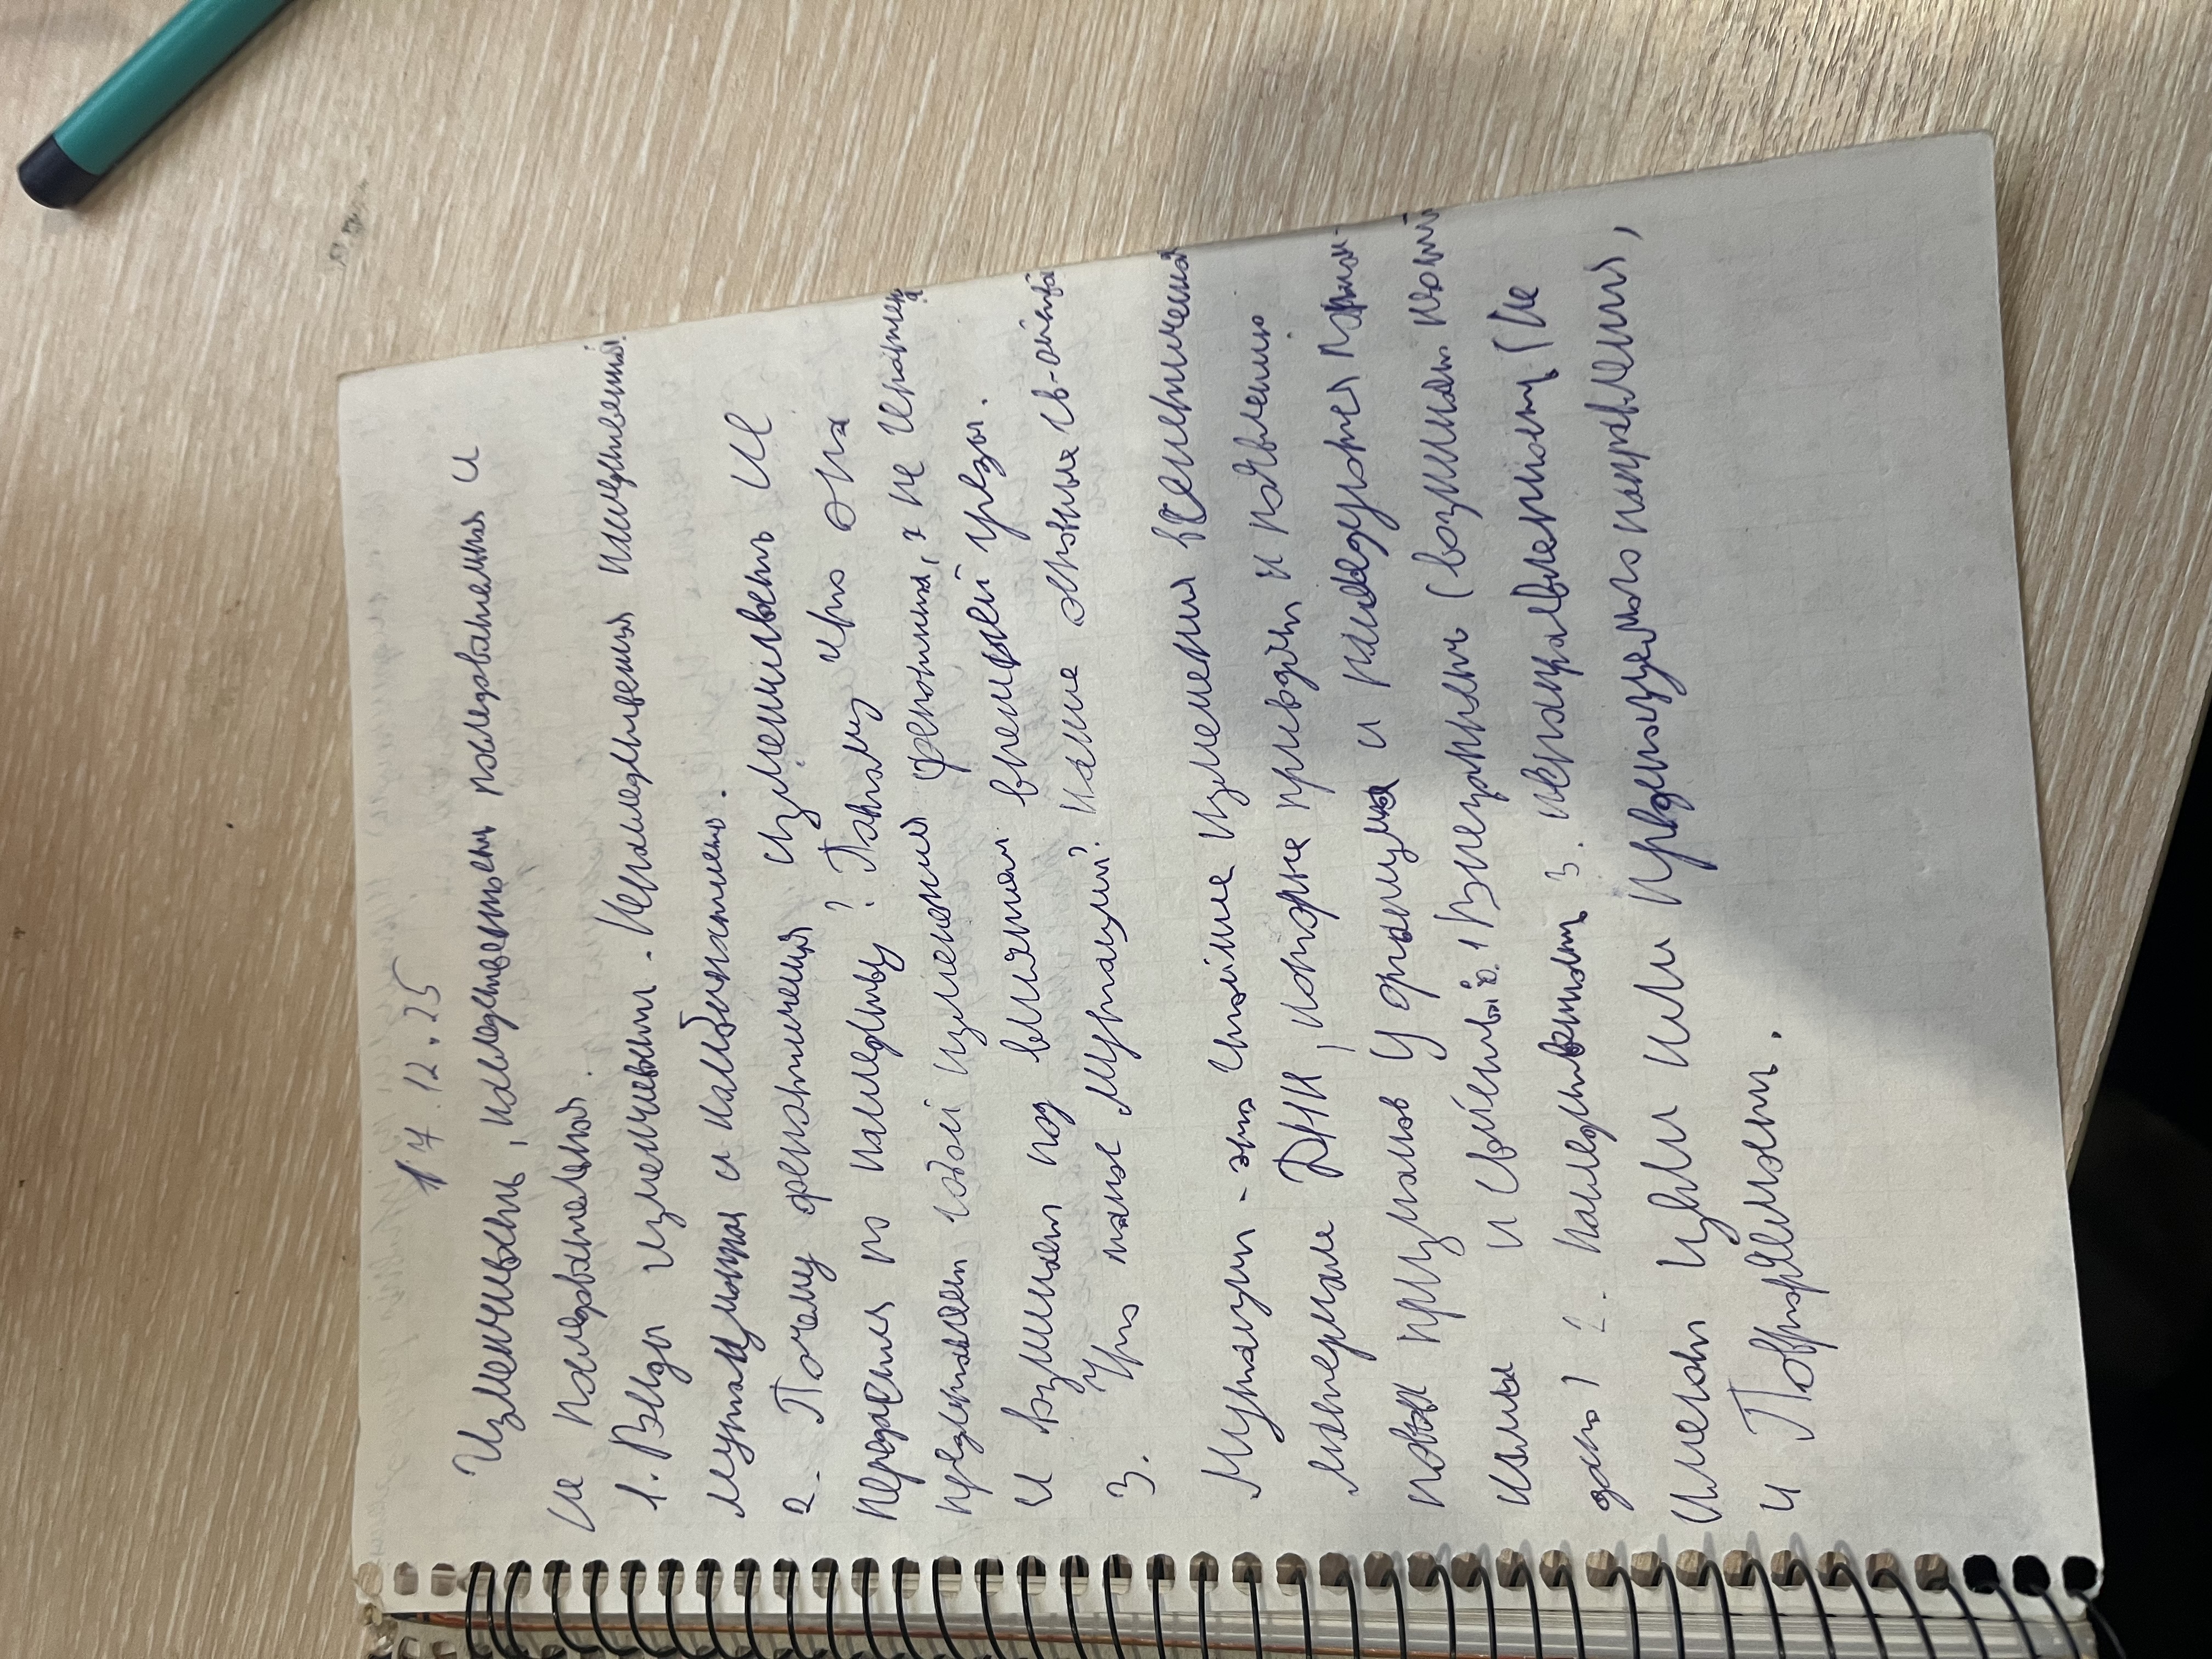 17.12.25
Изменчивость, наследственность последовательная и
не последовательная.
1. Виды изменчивости. Ненаследственная наследственная.
мутационная и комбинативно.
2. Почему фенотипическая изменчивость не
передаётся по наследству? Потому что она
представляет собой изменения фенотипа, а не генотипа
и возникает под влиянием внешней среды.
3. Что такое мутации? какие основные св-ойства
Мутации - это стойкие изменения генетическия
материале ДНК, которые приводят к появлению
новых признаков у организма и наследуются
и свойствы. 1 Внезапность (возникают
2. наследственность 3. ненаправленность (не
имеют цели или предсказуемого направления,
4 Повторяемость.